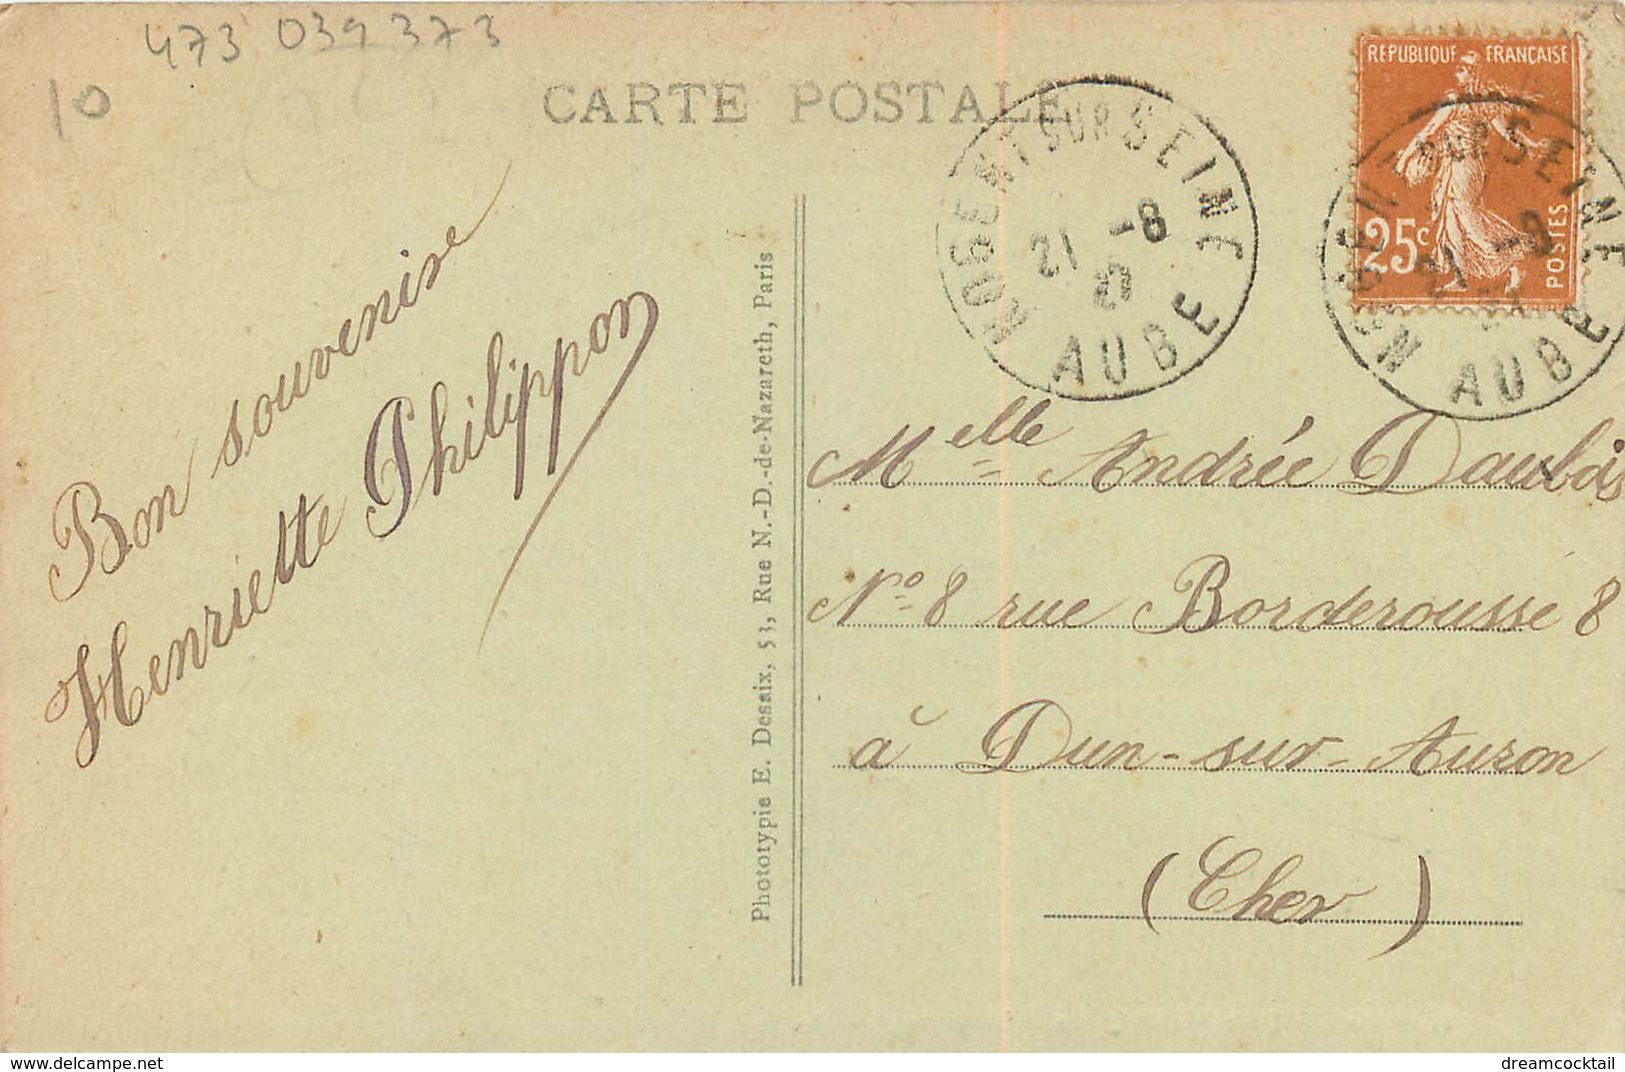 473 039 373
10
CARTE POSTALE
REPUBLIQUE FRANÇAISE
25c
POSTES
NOGENT SUR SEINE
21 -8
27
AUBE
NOGENT SUR SEINE
21 -8
AUBE
Bon souvenise
Henriette Philippon
Phototypie E. Desaix, 53, Rue N.-D.-de-Nazareth, Paris
Melle Andrée Daubois
No 8 rue Borderousse 8
à Dun-sur-Auron
(Cher)
delcampe.net
dreamcocktail